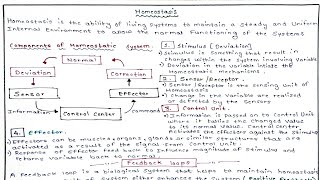 Homeostasis
Homeostasis is the ability of living systems to maintain a steady and uniform
internal environment to allow the normal functioning of the systems
Components of Homeostatic system:
Normal
Deviation
Correction
Sensor
Effector
Information
Control Center
Command
1. Stimulus [Deviation]
Stimulus is something that result in
changes within the system involving variable
Deviation in the variable inside the
homeostatic mechanisms.
2. Sensor/Receptor.
Sensor/Receptor is the sensing unit of
Homeostasis
Change in the variable are realised
or detected by the sensory
3. Control Unit.
Information is passed on to Control Unit
where it balances changed value
and normal value. Control center
activates the effectors against the stimulus
4. Effector.
Effectors can be muscles, organs, glands or similar structures that are
activated as a result of the signal from Control Unit
Response of effector feed back to influence magnitude of stimulus and
returns variable back to normal.
Feedback loops
A feedback loop is a biological system that helps to maintain homeostasis